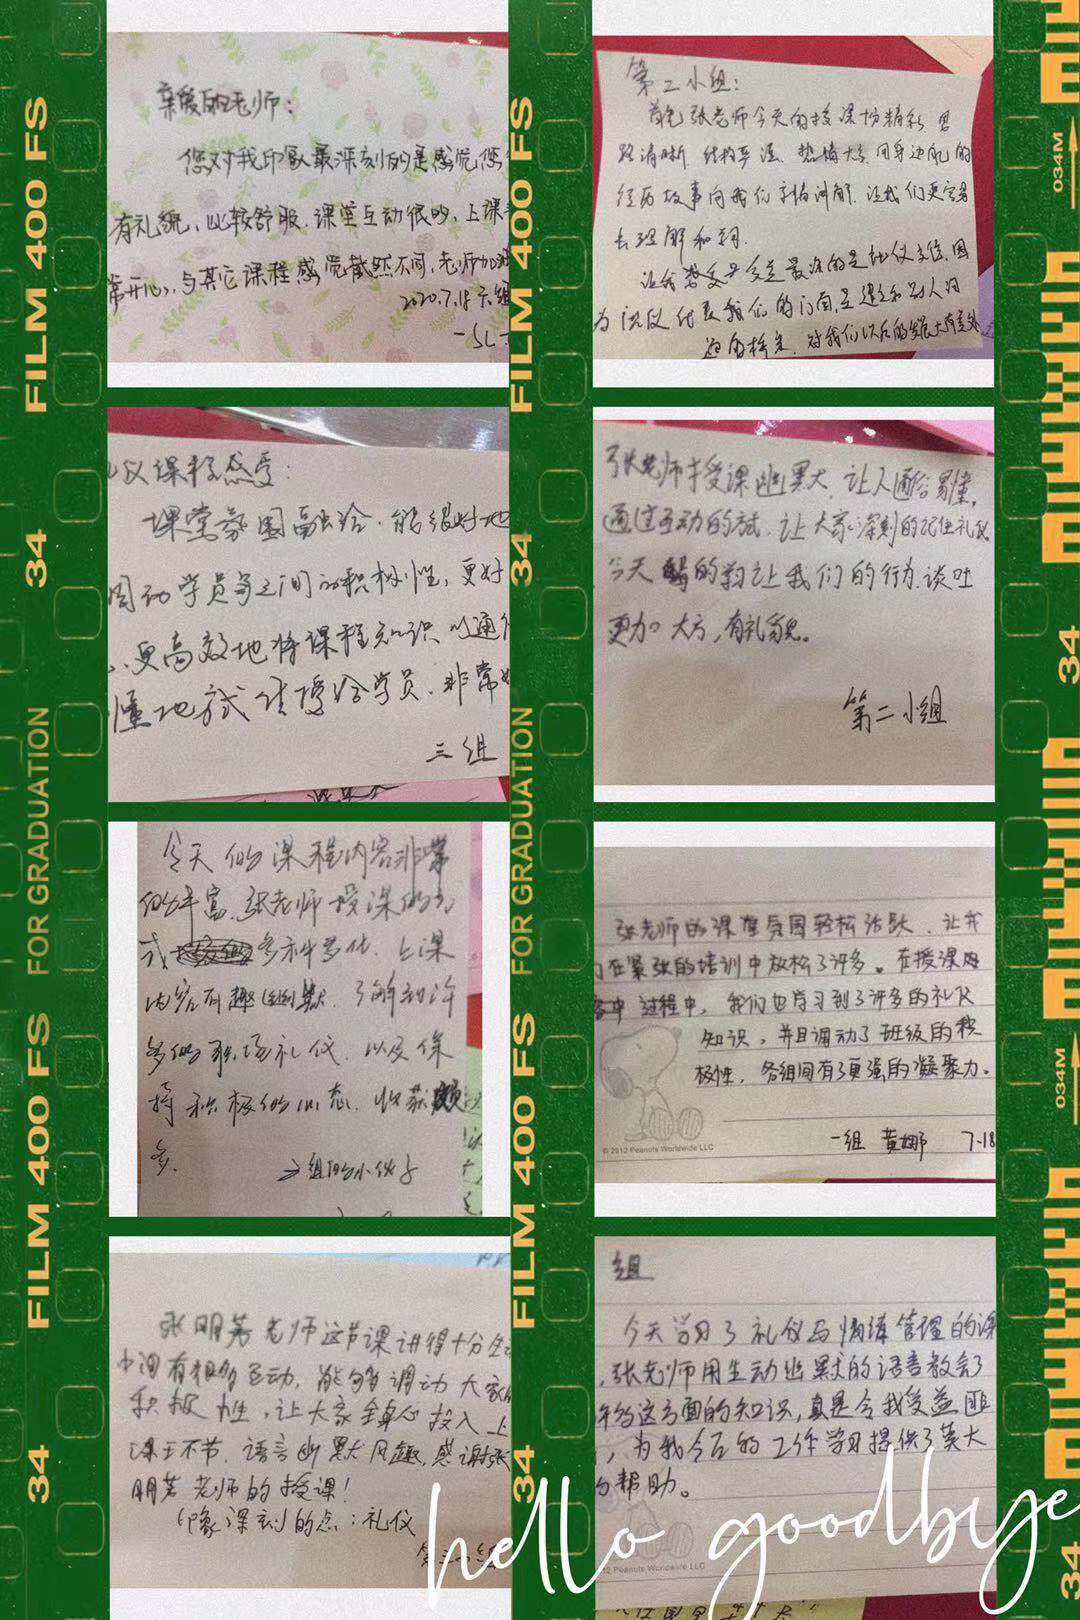 亲爱的老师:
您对我印象最深刻的是感觉您
有礼貌,比较舒服,课堂互动很多,上课
常开心,与其它课程感觉截然不同,老师加
2020.7.18 六组
第二小组:
首先张老师今天的授课十分精彩 思
路清晰 结构严谨 热情大方 用身边的
经历故事向我们讲解,让我们更容易
去理解和
因
为礼仪代表我们的门面,是
对我们以后的发展大有
仪课程感受:
课堂氛围融洽,能很好地
调动学员之间的积极性,更好
、更高效地将课程知识以通俗
懂地方式传授给学员,非常
三组
张老师授课幽默大 让人通俗易懂,
通过互动的方式,让大家深刻的记住礼仪
今天 的 让我们的行为、谈吐
更加大方,有礼貌。
第二小组
今天的课程内容非常
的丰富,张老师授课的方
式多种多样,上课
内容有趣幽默,了解到许
多的职场礼仪,以及保
持积极的心态,收获颇
多.
组的小伙子
张老师的课堂氛围轻松活跃,让我
们在紧张的培训中放松了许多。在授课
过程中,我们也学习到了许多的礼仪
知识,并且调动了班级的积
极性,各组间有了更强的凝聚力。
© 2012 Peanuts Worldwide LLC
一组 黄娜 7.18
张明 老师这节课讲得十分生动
中间有很多互动,能够调动大家的
积极性,让大家全身心投入上
课 环节,语言幽默风趣,感谢张
明 老师的授课!
印象深刻的点:礼仪
组
今天学习了礼仪与情绪管理的课
,张老师用生动幽默的语言教会了
这方面的知识,真是令我受益匪
,为我今后的工作学习提供了莫大
的帮助。
2012 Peanuts Worldwide LLC
hello goodbye
FILM 400 FS
34
FOR GRADUATION
FILM 400 FS
34
FILM 400 FS
34
FOR GRADUATION
FILM 400 FS
34
034M
34
034M
34